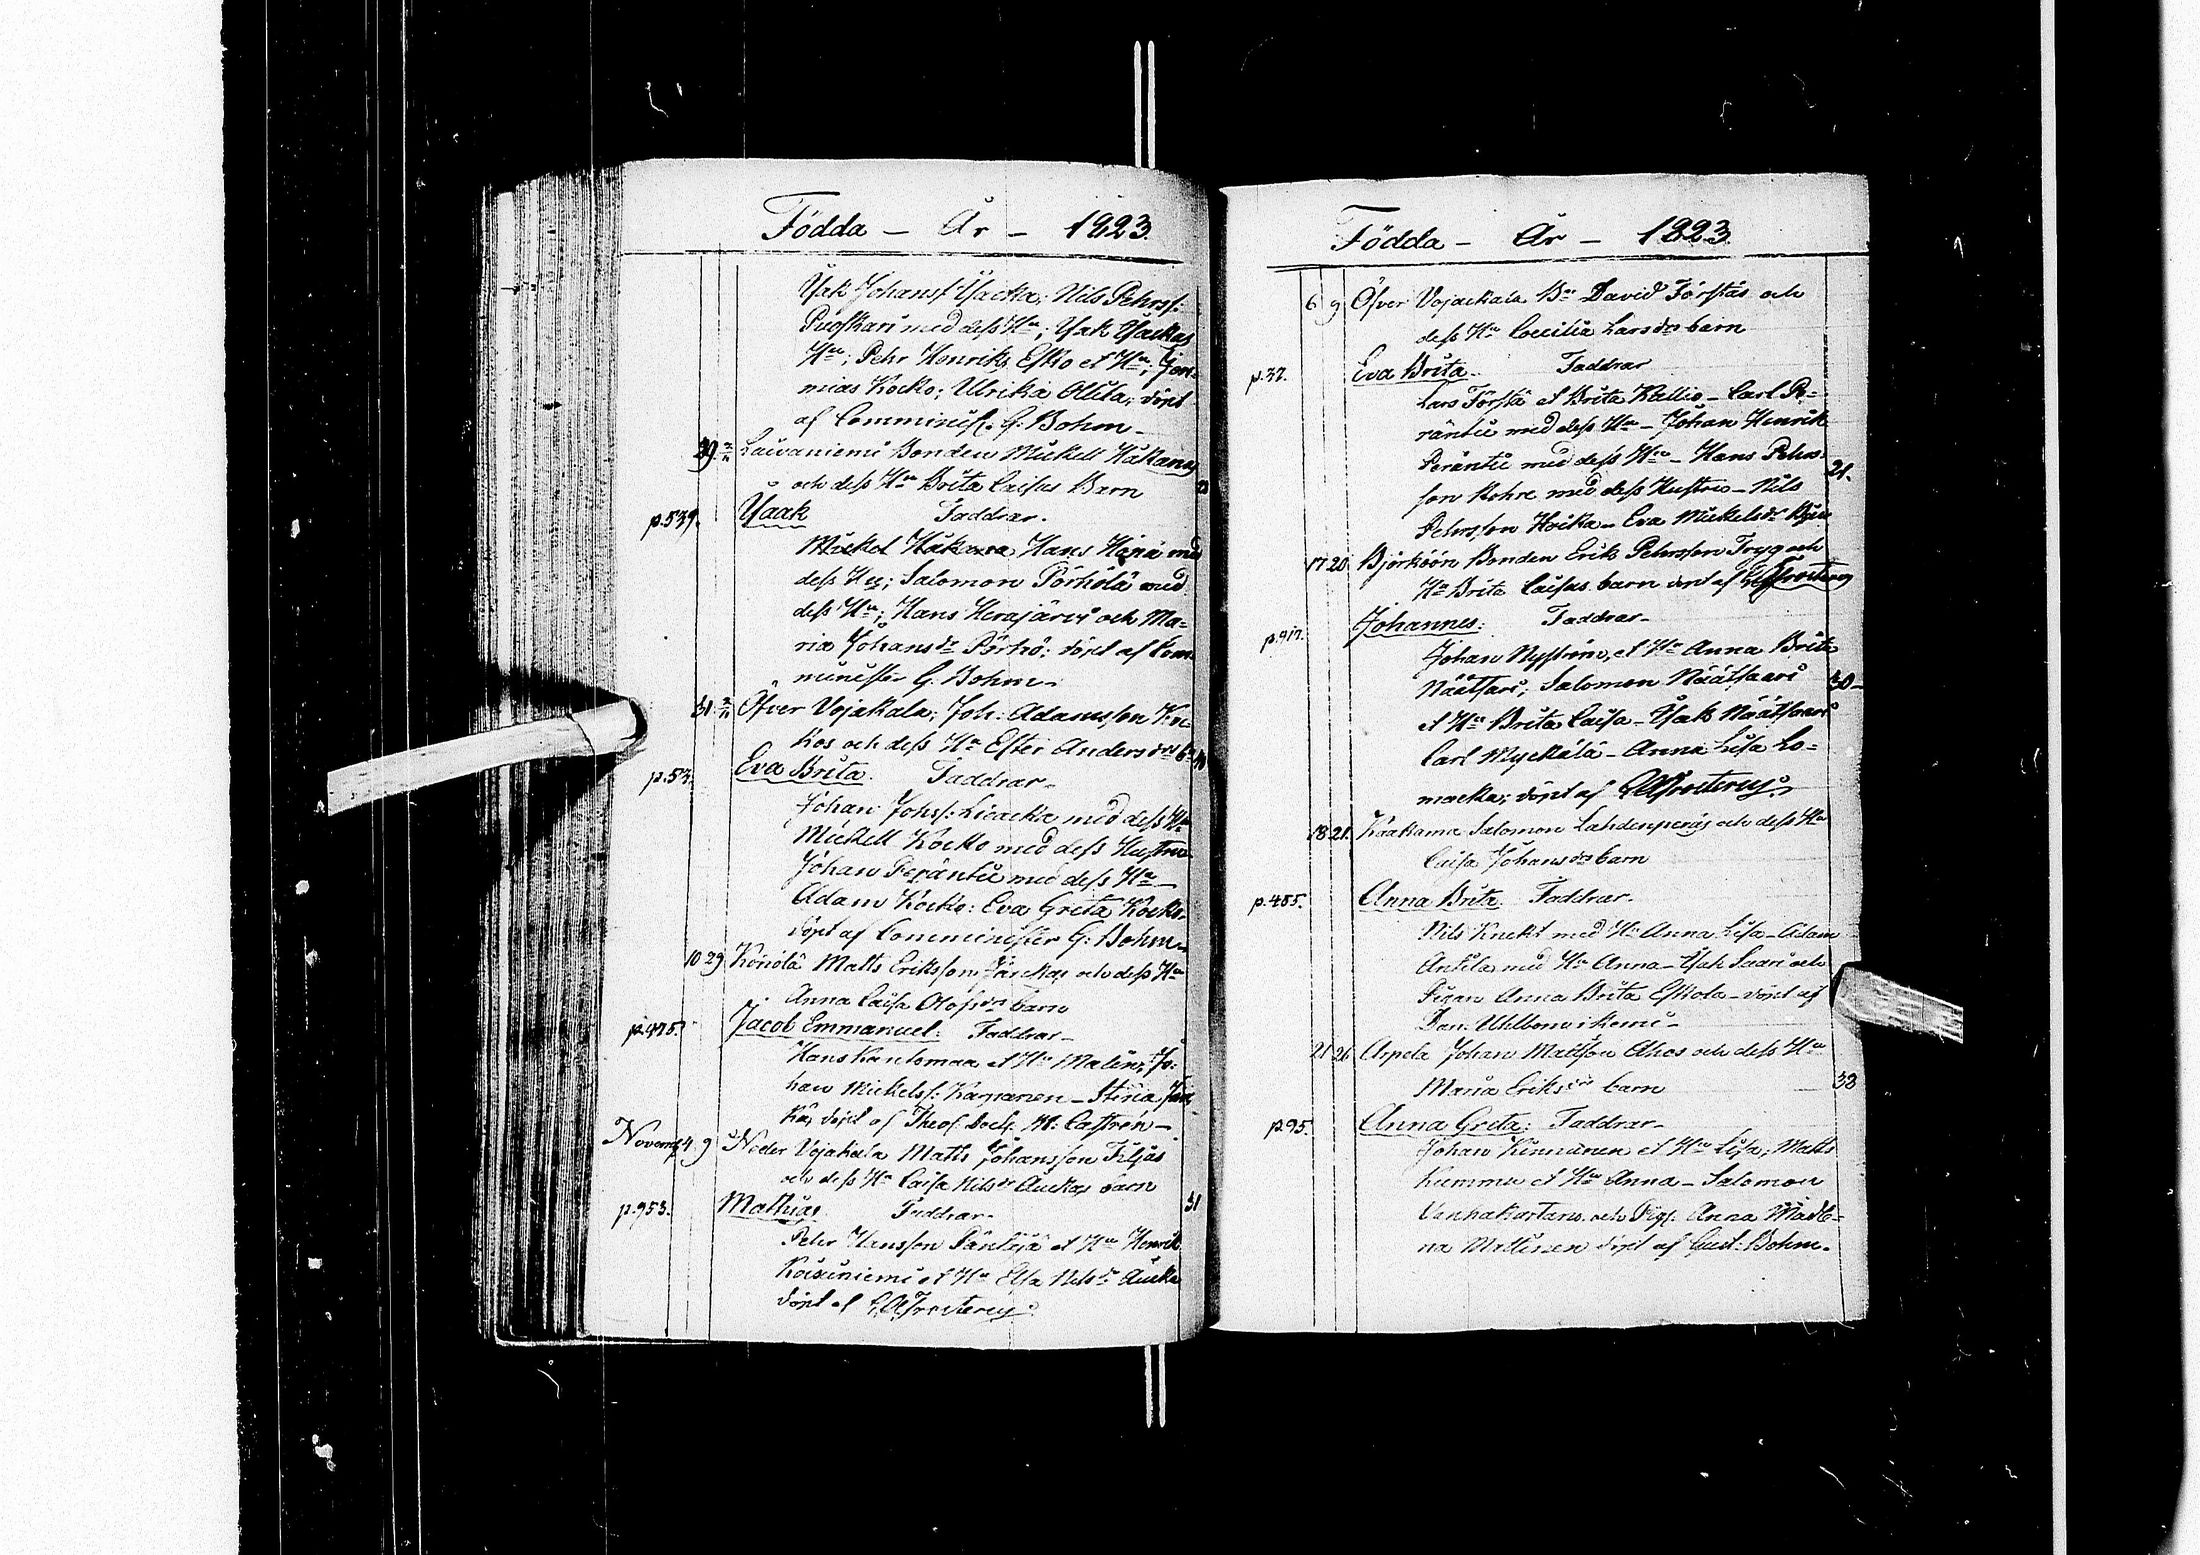 Födda – År – 1823.
Isak Johansſ Isacka; Nils Pehrsſ:
Puoskari med deſs Hu; Isak Isackas
Hu; Pehr Henriks Esko et Hu; Jere-
mias Kocko; Ulrika Ollila; döpt
af Comminiſt. G. Bohm –
29 2/11 Laivaniemi Bonden Mickell Håkans
och deſs Hu Brita Caiſas Barn 23
p.539. Isaak Faddrar.
Mickel Håkana Hans med
deſs Hu; Salomon Pörhölä med
deſs Hu; Hans Herajärvi och Ma-
ria Johans dr Pörhö; döpt af Com-
miniſter G. Bohm –
31 2/11 Öfver Vojakala; Joh: Adamsſon Koc-
kos och deſs Hu Eſter Anders drs bn 40
p.53. Eva Brita. Faddrar –
Johan Johsſ: Liacka med deſs Hu
Mickell Kocko med deſs Hustru
Johan Peräntie med deſs Hu –
Adam Kocko: Eva Greta Kocko.
döpt af Comminiſter G: Bohm –
10 29 Könölä Matts Eriksſon och deſs Hu
Anna Caiſa Olofs drs barn
p.475. Jacob Emmanuel. Faddrar –
Hans Kantomaa et Hu Malin; Jo-
han Mickelsſ: Karjanen – Stina
döpt af Theoſ. Doct. M. Caſtrén –
Novemb. 4 9 Neder Vojakala Matts Johansſon Filjas
och deſs Hu Caiſa Nils dr Auckas barn
p.953. Mathias Faddrar – 31
Pehr Hansſon et Hu Henrik
Koivuniemi et Hu Elſa Nils dr Aucka
döpt af
Födda – År – 1823
6 9 Öfver Vojackala Bn David Förſtas och
deſs Hu Cæcilia Lars drs barn
p.37. Eva Brita. Faddrar
Lars Förſta et Brita Kallio – Carl Pe-
räntie med deſs Hu – Johan Henrik
Peräntie med deſs Hu – Hans Pehrs- 21.
ſon Rohre med deſs Hustru – Nils
Pehrsſon – Eva Mickels dr
17 20. Björköön Bonden Erik Pehrsſon Tryg och
Hu Brita Caiſas barn döpt af
p.917. Johannes: Faddrar –
Johan Nyſtröm, et Hu Anna Brita
Näätſari; Salomon Näätſaari 30 –
et Hu Brita Caiſa – Isak Näätſaari
Carl Myckälä – Anna Liſa Lo-
macka; döpt af
18 21. Kaakama Salomon Lahdenperäs och deſs Hu
Caiſa Johans drs barn
p.485. Anna Brita. Faddrar.
Nils Knekt med Hu Anna Liſa – Adam
Antila med Hu Anna – Isak Saari och
Pigan Anna Brita Eſkola – döpt af
Dan. Uhlbom i Kemi –
21 26 Arpela Johan Mattſon Ahos och deſs Hu
Maria Eriks drs barn 38
p.95. Anna Greta: Faddrar –
Johan Kinnunen et Hu Liſa; Matts
Kummu et Hu Anna – Salomon
Vanhakartano och Pigſ: Anna Madle-
na Mattinen döpt af Gust: Bohm.